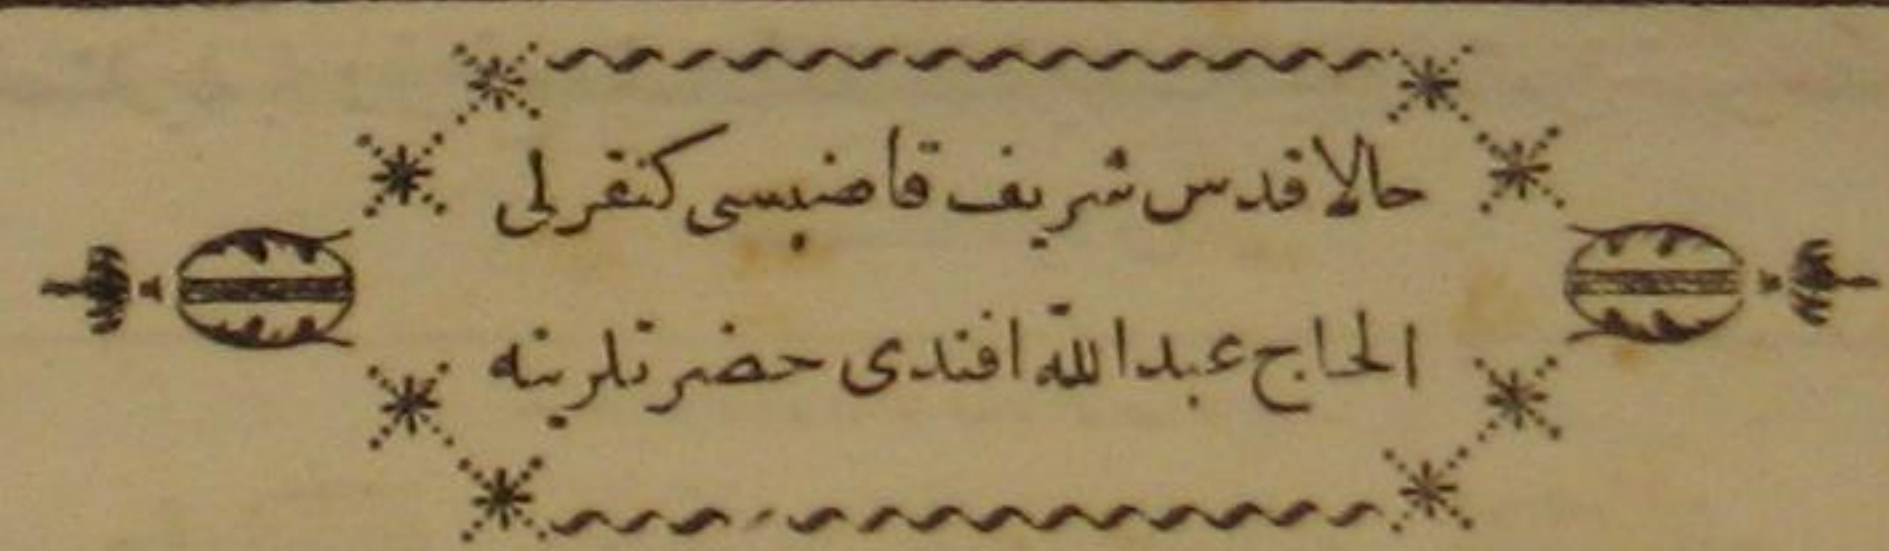 حالا قدس شريف قاضيسى كنقرلى
الحاج عبد الله افندى حضرتلرينه